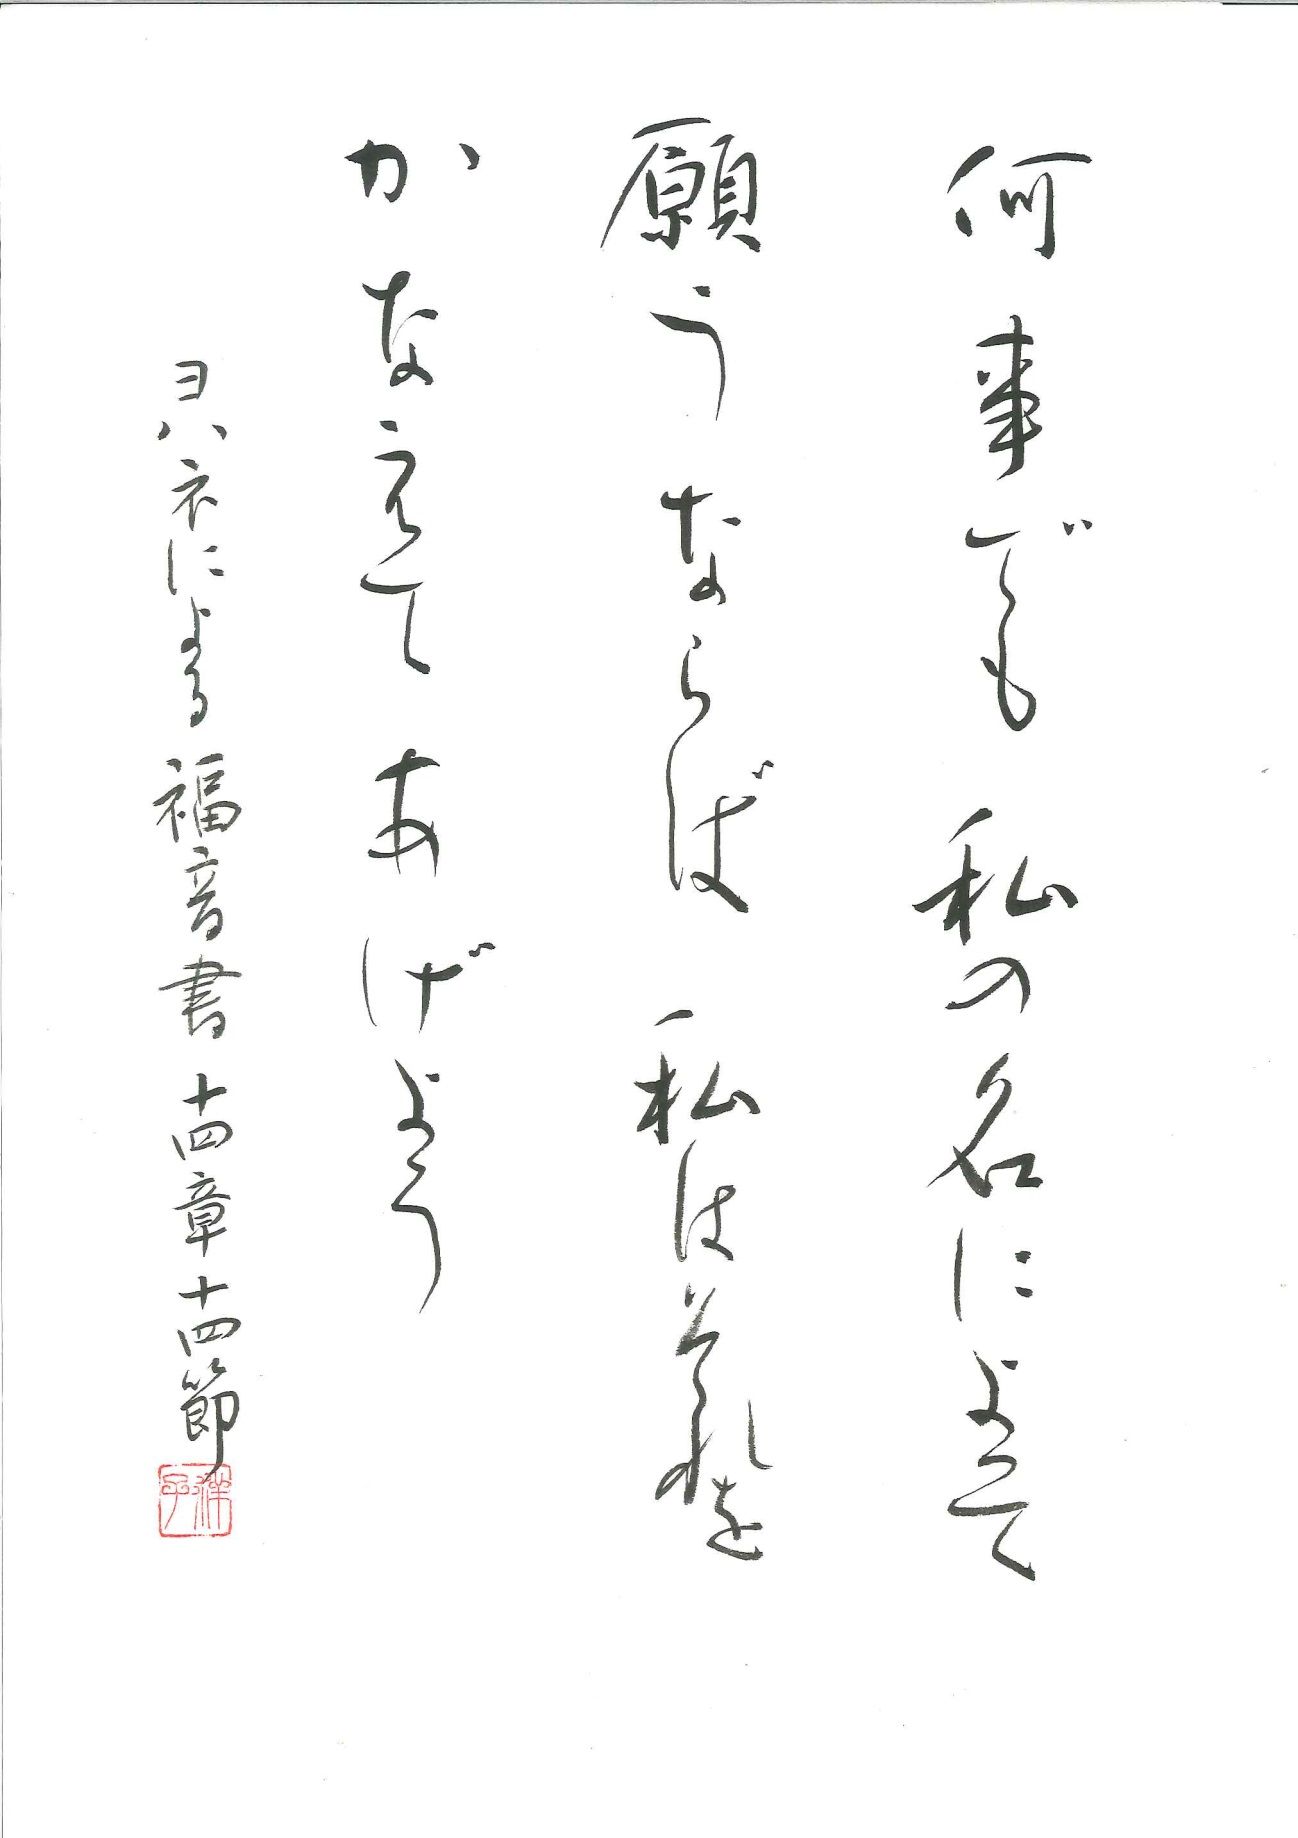 何事でも私の名によって
願うならば私はそれを
かなえてあげよう
ヨハネによる福音書十四章十四節
洋子